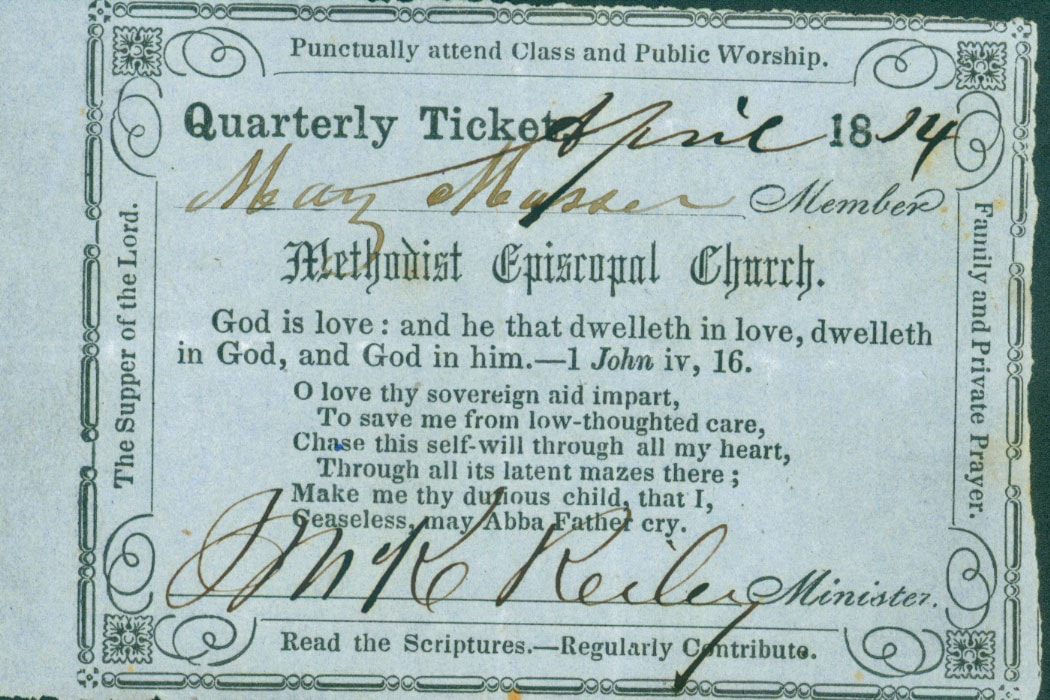 Punctually attend Class and Public Worship.
Quarterly Ticket April 1874
May Musser Member
Methodist Episcopal Church.
The Supper of the Lord.
Family and Private Prayer.
God is love: and he that dwelleth in love, dwelleth
in God, and God in him.—1 John iv, 16.
O love thy sovereign aid impart,
To save me from low-thoughted care,
Chase this self-will through all my heart,
Through all its latent mazes there;
Make me thy dutious child, that I,
Ceaseless, may Abba Father cry.
J McK Reiley Minister.
Read the Scriptures.—Regularly Contribute.